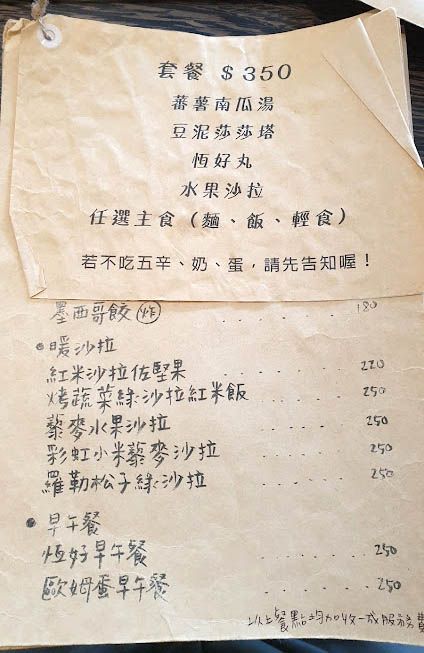 套餐 $350
蕃薯南瓜湯
豆泥莎莎塔
恆好丸
水果沙拉
任選主食（麵、飯、輕食）
若不吃五辛、奶、蛋，請先告知喔！
墨西哥餃 炸 ..... 180
●暖沙拉
紅米沙拉佐堅果 ..... 220
烤蔬菜綠沙拉紅米飯 ..... 250
藜麥水果沙拉 ..... 250
彩虹小米藜麥沙拉 ..... 250
羅勒松子綠沙拉 ..... 250
●早午餐
恆好早午餐 ..... 250
歐姆蛋早午餐 ..... 250
以上餐點均加收一成服務費